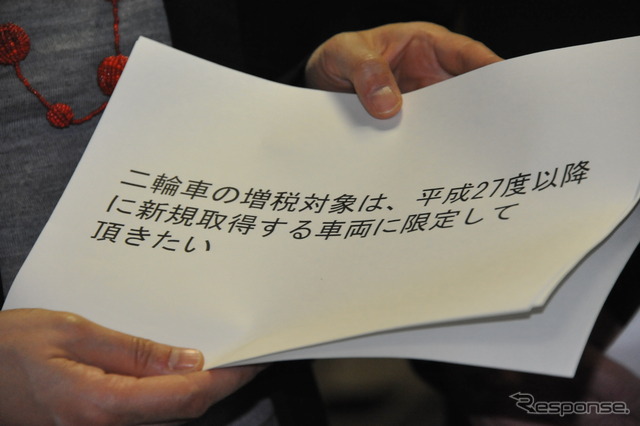 二輪車の増税対象は、平成27度以降
に新規取得する車両に限定して
頂きたい
Response.